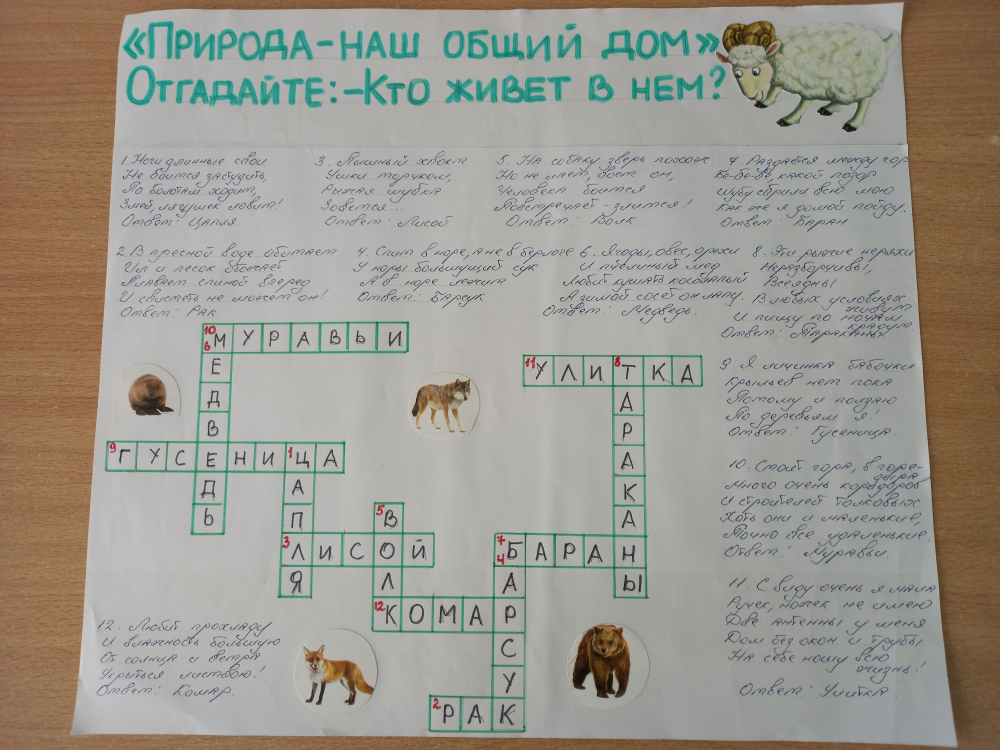 «ПРИРОДА-НАШ ОБЩИЙ ДОМ»
ОТГАДАЙТЕ:-КТО ЖИВЕТ В НЕМ?
1. Ноги длинные свои
Не боится застудить,
По болотам ходит,
Змей, лягушек ловит!
Ответ: Цапля.
3. Пышный хвост
Ушки торчком,
Рыжая шубка
Зовется...
Ответ: Лисой
5. На собаку зверь похож
Но не лает, воет он,
Человека боится
Повстречает - злится!
Ответ: Волк
7. Раздаётся между гор
Бе-бе-бе, какой позор
Шубу сбрили всю мою
Как же я домой пойду.
Ответ: Баран
2. В пресной воде обитает
Ил и песок обожает
Плавает спиной вперед
И свистеть не может он!
Ответ: Рак
4. Спит в норе, а не в берлоге
У норы большущий сук
А в норе лежит
Ответ: Барсук
6. Ягоды, овес, орехи
И пчелиный мед
Любит кушать косолапый
А зимой сосёт он лапу.
Ответ: Медведь.
8. Эти рыжие неряхи
Неразборчивы,
Всеядны
В любых условиях
живут
И пищу по ночам
крадут
Ответ: Тараканы.
10
6 М У Р А В Ь И
Е
Д
В
Е
Д
Ь
11 У Л И 8 Т К А
А
Р
А
К
А
Н
Ы
9 Г У С Е Н И 1 Ц А
А
П
Л
Я
5 В
О
Л
К
3 Л И С О Й
7
4 Б А Р А Н
А
Р
С
У
К
12 К О М А Р
2 Р А К
9. Я личинка бабочки
Крыльев нет пока
Потому и ползаю
По деревьям я!
Ответ: Гусеница.
10. Стоит гора, в горе-
дыра
Много очень коридоров
И строителей толковых
Хоть они и маленькие,
Точно все удаленькие.
Ответ: Муравьи.
11. С виду очень я мала
Ручек, ножек не имею
Две антенны у меня
Дом без окон и трубы
На себе ношу всю
жизнь!
Ответ: Улитка.
12. Любит прохладу
И влажность большую
От солнца и ветра
Укрыться листвою!
Ответ: Комар.